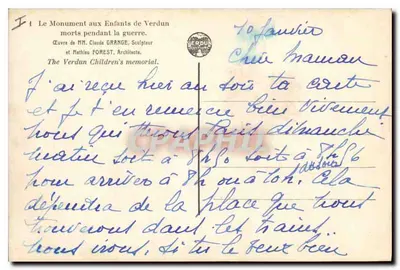 1 Le Monument aux Enfants de Verdun
morts pendant la guerre.
Œuvre de MM. Claude GRANGE, Sculpteur
et Mathieu FOREST, Architecte.
The Verdun Children's memorial.
10 Janvier
Chère Maman
J'ai reçu hier au soir ta carte
et je t'en remercie bien vivement
nous que dimanche
matin soit à soit à
pour arriver à 8h ou à 10h. Cela
dépendra de la place que nous
trouverons dans les trains.
nous irons, si tu le veux bien